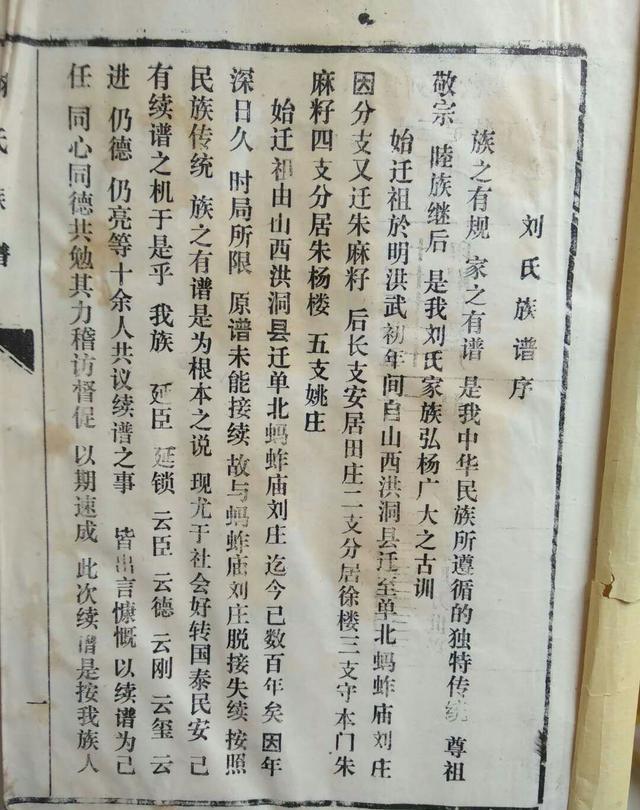 刘氏族谱序
族之有规 家之有谱 是我中华民族所遵循的独特传统 尊祖
敬宗 睦族继后 是我刘氏家族弘杨广大之古训
始迁祖於明洪武初年间自山西洪洞县迁至单北蚂蚱庙刘庄
因分支又迁朱麻籽 后长支安居田庄二支分居徐楼三支守本门朱
麻籽四支分居朱杨楼 五支姚庄
始迁祖由山西洪洞县迁单北蚂蚱庙刘庄 迄今已数百年矣 因年
深日久 时局所限 原谱未能接续 故与蚂蚱庙刘庄脱接失续 按照
民族传统 族之有谱是为根本之说 现尤于社会好转国泰民安 己
有续谱之机于是乎 我族 延臣 延锁 云臣 云德 云刚 云玺 云
进 仍德 仍亮等十余人共议续谱之事 皆出言慷慨 以续谱为己
任 同心同德共勉其力稽访督促 以期速成 此次续谱是按我族人
氏族谱
一